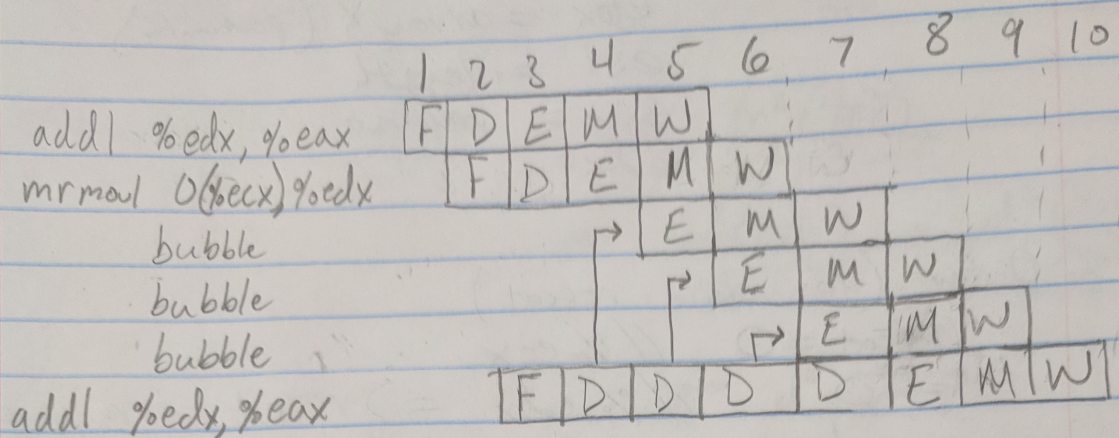 1 2 3 4 5 6 7 8 9 10
addl %edx, %eax F D E M W
mrmovl 0(%ecx) %edx F D E M W
bubble E M W
bubble E M W
bubble E M W
addl %edx, %eax F D D D D E M W